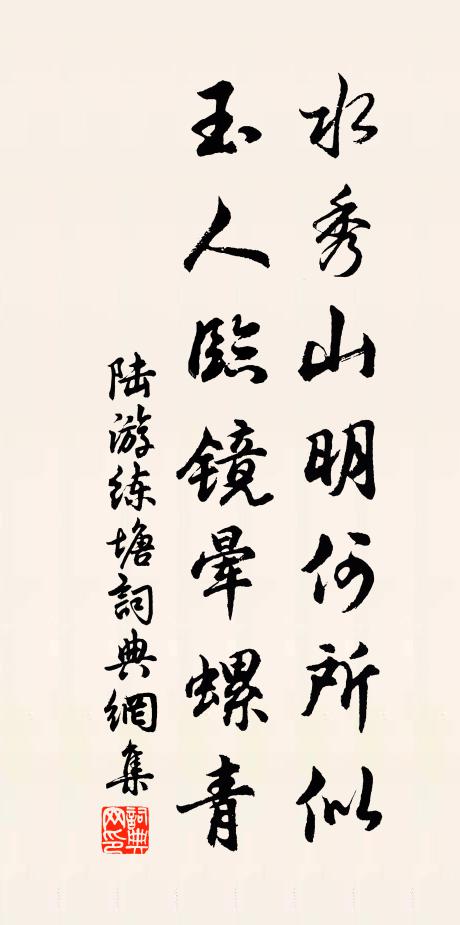 水秀山明何所似
玉人臨镜晕螺青
陆游练塘詞典網集
詞典网印